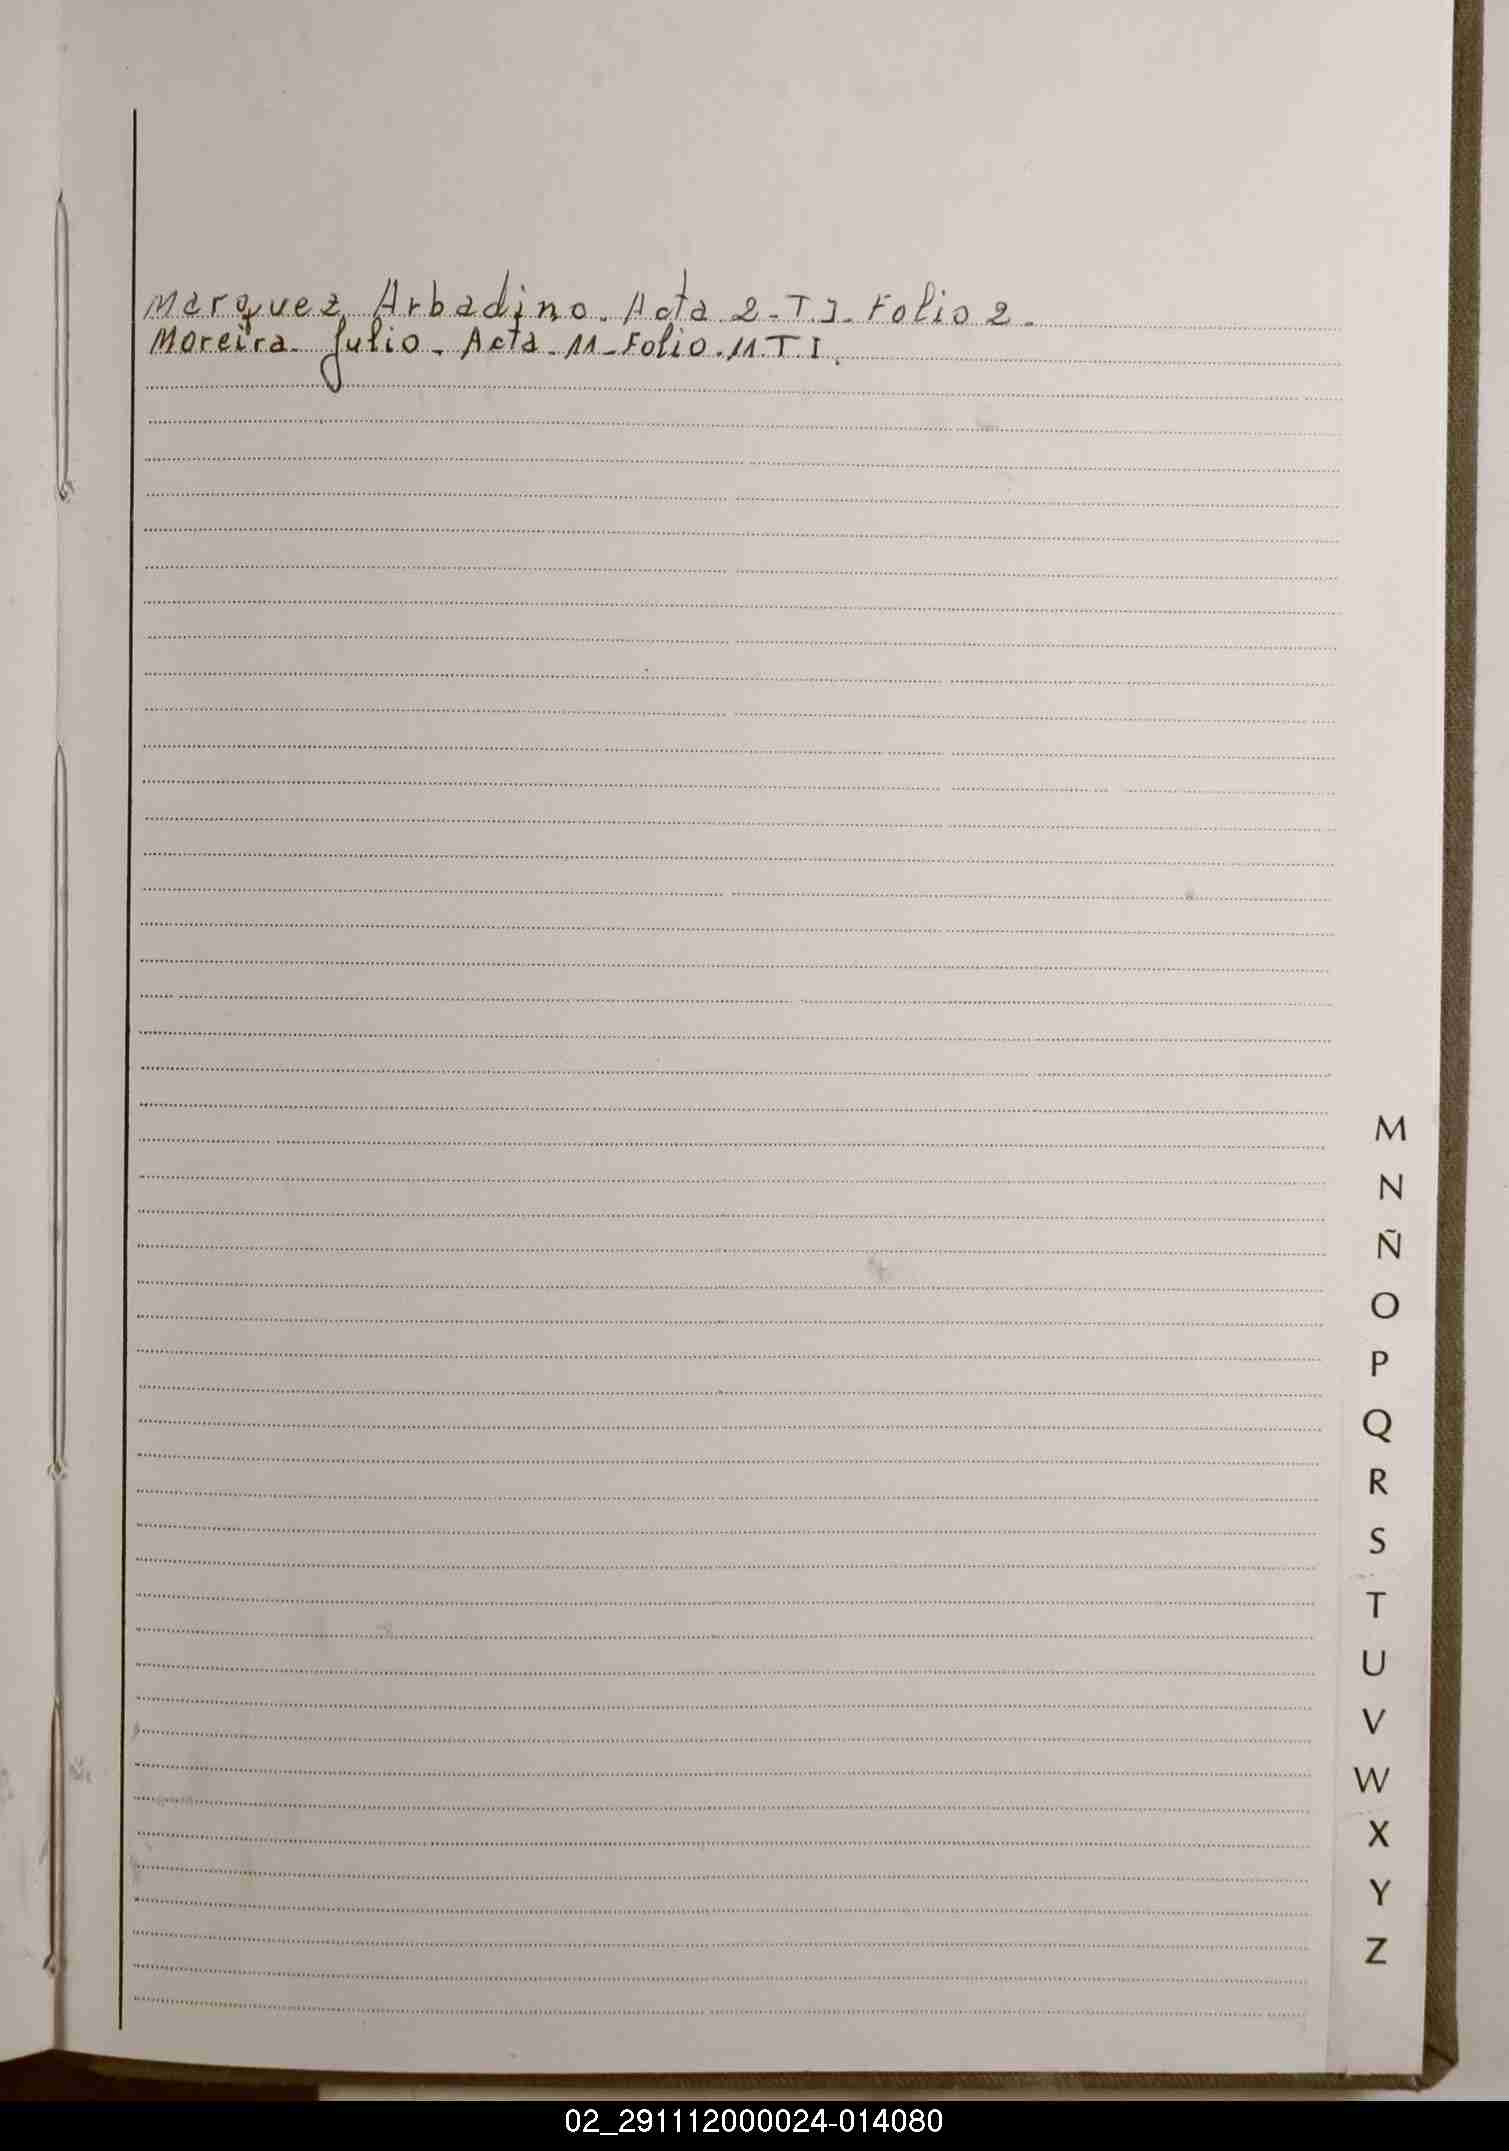 Marquez Arbadino. Acta 2-T.I-Folio 2.
Moreira. Julio. Acta-11-Folio.11.T.I.
M
N
Ñ
O
P
Q
R
S
T
U
V
W
X
Y
Z
02_291112000024-014080